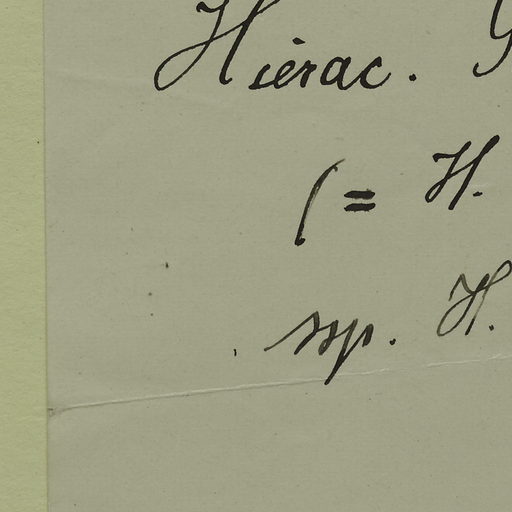 Hierac. G
(= H.
ssp. H.